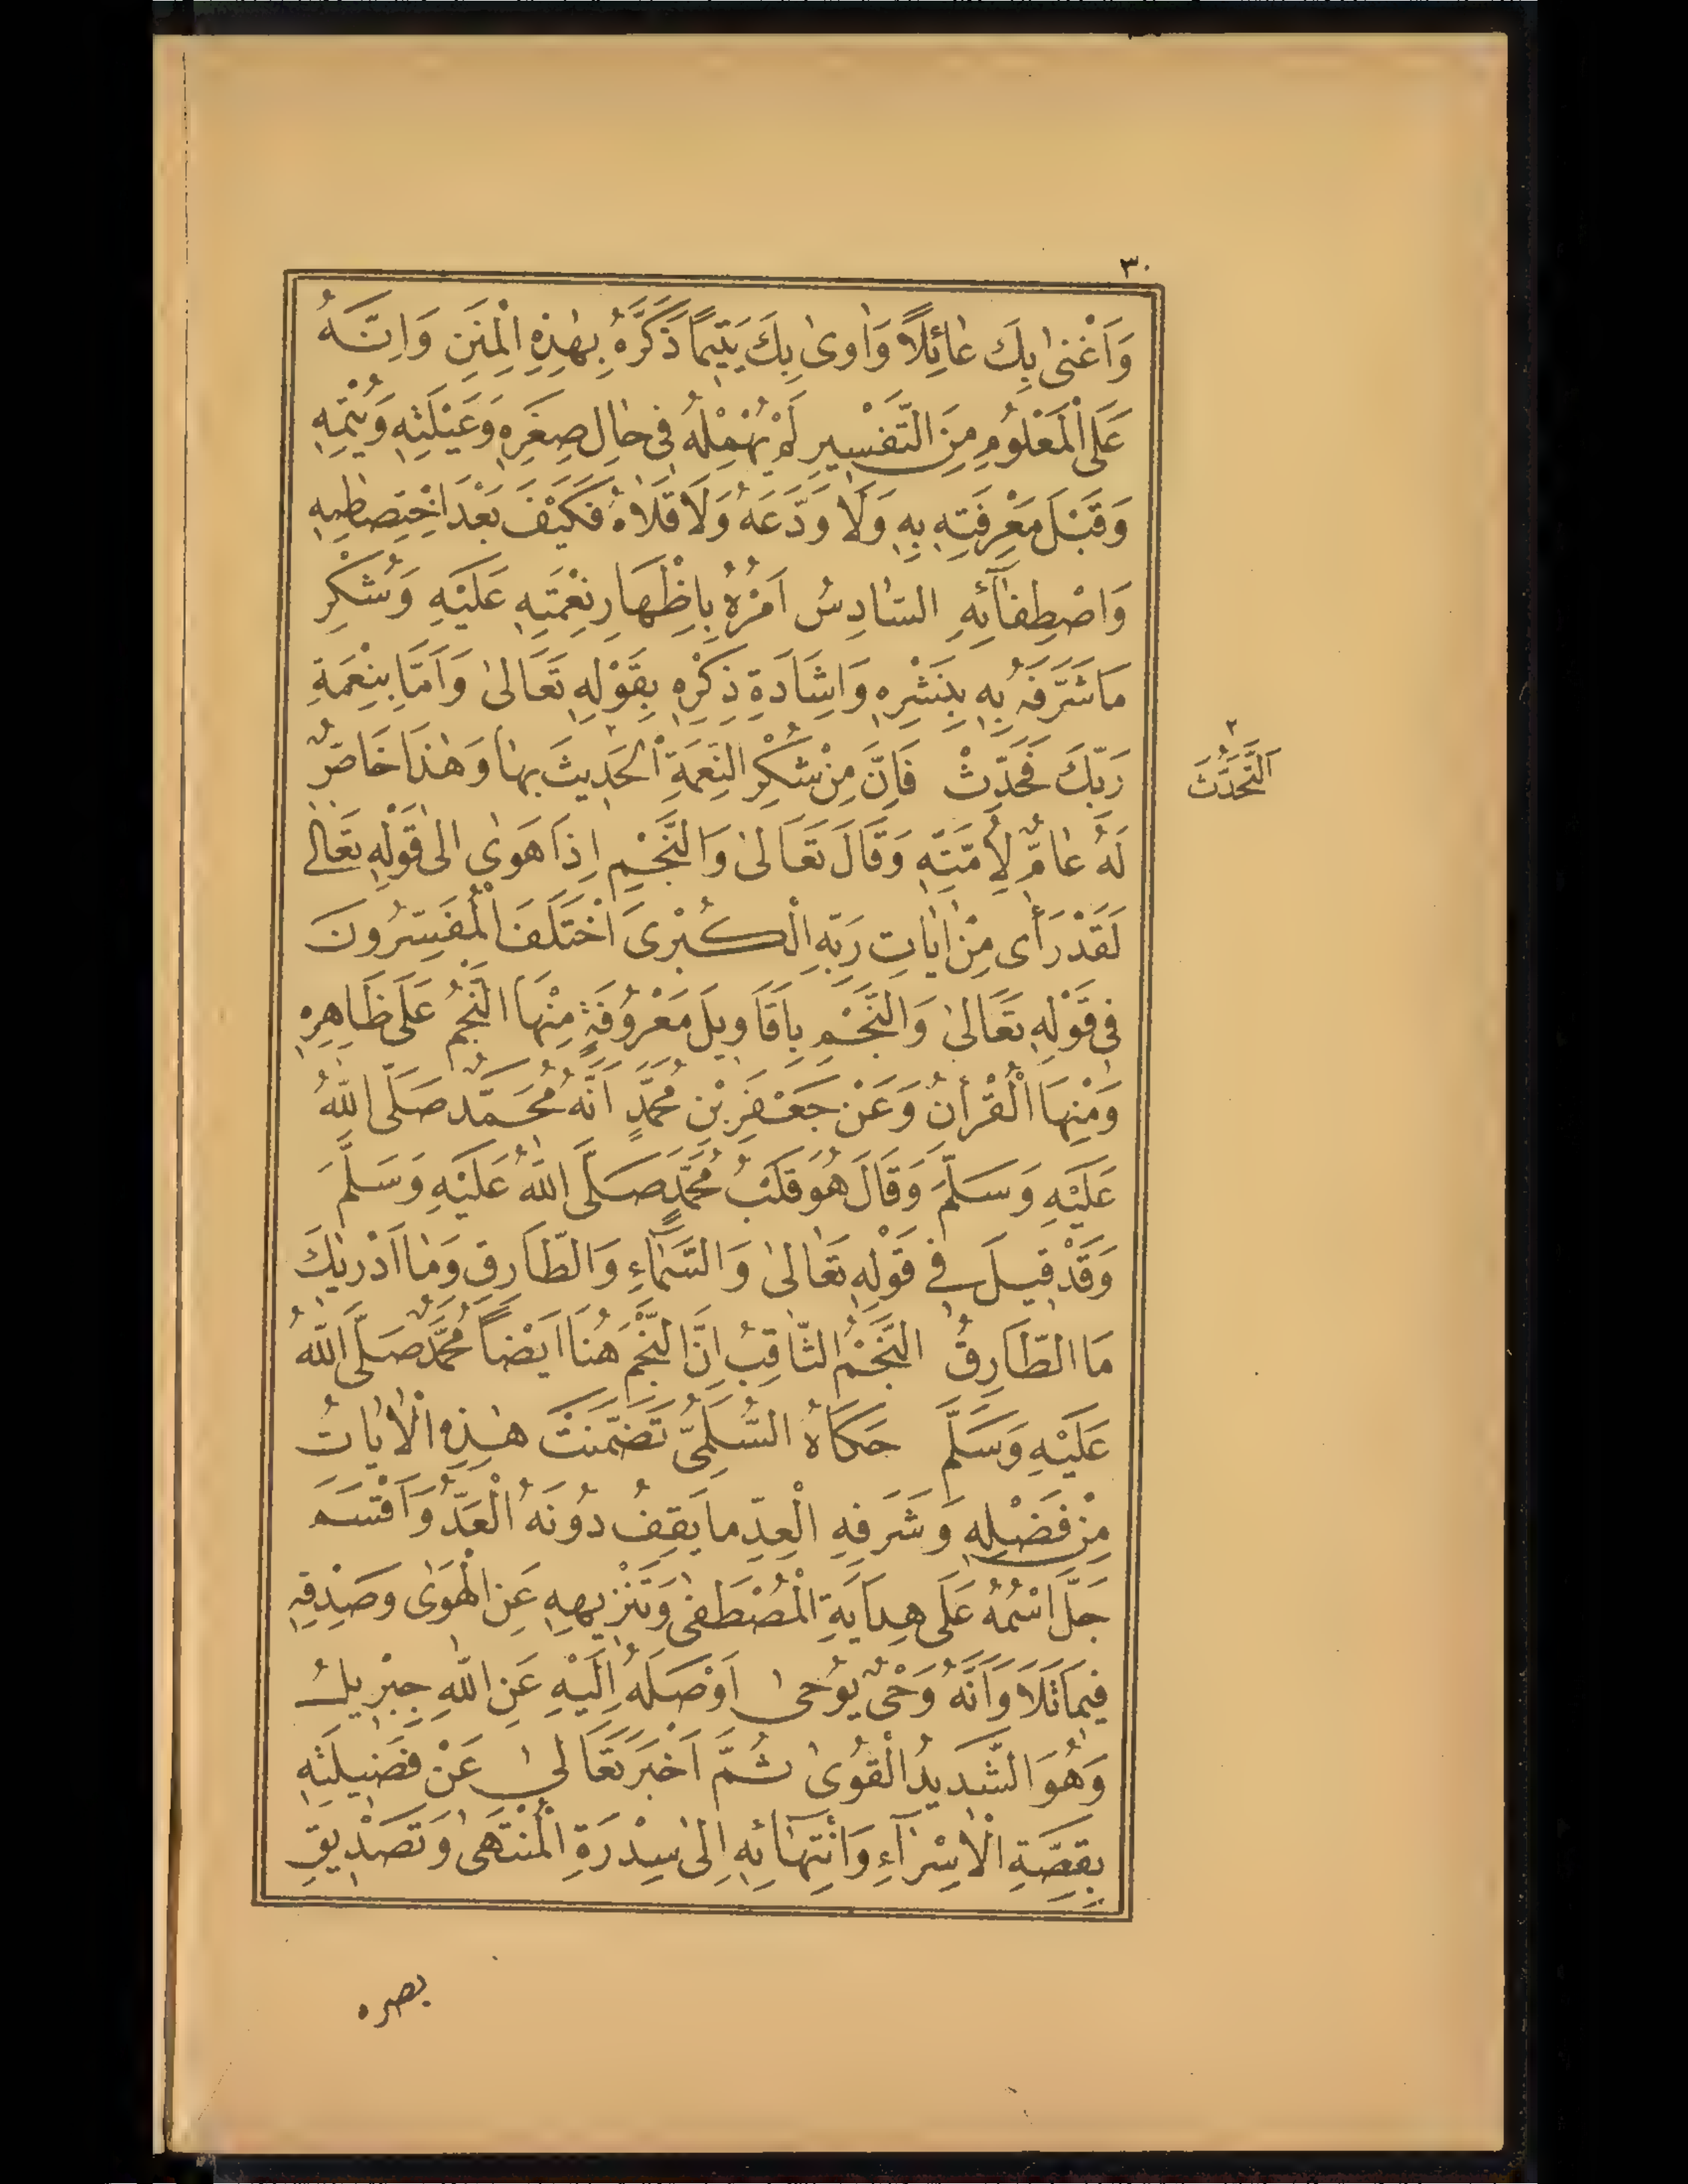 ٣٠
وَاَغْنٰى بِكَ عٰائِلًا وَاٰوٰى بِكَ يَتِيمًا ذَكَّرَهُ بِهٰذِهِ الْمِنَنِ وَاِنَّهُ
عَلَى الْمَعْلُومِ مِنَ التَّفْسِيرِ لَمْ يُهْمِلْهُ فِى حٰالِ صِغَرِهِ وَعَيْلَتِهِ وَيُتْمِهِ
وَقَبْلَ مَعْرِفَتِهِ بِهِ وَلَا وَدَّعَهُ وَلَا قَلَاهُ فَكَيْفَ بَعْدَ اخْتِصٰاصِهِ
وَاصْطِفٰآئِهِ السّٰادِسُ اَمْرُهُ بِاِظْهَارِ نِعْمَتِهِ عَلَيْهِ وَشُكْرِ
مَا شَرَّفَهُ بِهِ بِنَشْرِهِ وَاِشَادَةِ ذِكْرِهِ بِقَوْلِهِ تَعَالىٰ وَاَمَّا بِنِعْمَةِ
رَبِّكَ فَحَدِّثْ فَاِنَّ مِنْ شُكْرِ النِّعْمَةِ الْحَدِيثَ بِهَا وَهٰذَا خَاصٌّ
٢
اَلتَّحَدُّثَ
لَهُ عٰامٌّ لِاُمَّتِهِ وَقَالَ تَعَالىٰ وَالنَّجْمِ اِذَا هَوٰى اِلىٰ قَوْلِهِ تَعَالىٰ
لَقَدْ رَأٰى مِنْ اٰيَاتِ رَبِّهِ الْكُبْرىٰ اخْتَلَفَ الْمُفَسِّرُونَ
فِى قَوْلِهِ تَعَالىٰ وَالنَّجْمِ بِاَقَاوِيلَ مَعْرُوفَةٍ مِنْهَا النَّجْمُ عَلَى ظَاهِرِهِ
وَمِنْهَا الْقُرْاٰنُ وَعَنْ جَعْفَرِ بْنِ مُحَمَّدٍ اَنَّهُ مُحَمَّدٌ صَلَّى اللّٰهُ
عَلَيْهِ وَسَلَّمَ وَقَالَ هُوَ قَلْبُ مُحَمَّدٍ صَلَّى اللّٰهُ عَلَيْهِ وَسَلَّمَ
وَقَدْ قِيلَ فِى قَوْلِهِ تَعَالىٰ وَالسَّمٰآءِ وَالطَّارِقِ وَمٰا اَدْرٰيكَ
مَا الطَّارِقُ النَّجْمُ الثَّاقِبُ اِنَّ النَّجْمَ هُنَا اَيْضًا مُحَمَّدٌ صَلَّى اللّٰهُ
عَلَيْهِ وَسَلَّمَ حَكَاهُ السُّلَمِيُّ تَضَمَّنَتْ هٰذِهِ الْاٰيٰاتُ
مِنْ فَضْلِهِ وَشَرَفِهِ الْعِدِّ مٰا يَقِفُ دُونَهُ الْعَدُّ وَاَقْسَمَ
جَلَّ اسْمُهُ عَلَى هِدَايَةِ الْمُصْطَفٰى وَتَنْزِيهِهِ عَنِ الْهَوٰى وَصِدْقِهِ
فِيمَا تَلَا وَاَنَّهُ وَحْىٌ يُوحىٰ اَوْصَلَهُ اِلَيْهِ عَنِ اللّٰهِ جِبْرِيلُ
وَهُوَ الشَّدِيدُ الْقُوىٰ ثُمَّ اَخْبَرَ تَعَالىٰ عَنْ فَضِيلَتِهِ
بِقِصَّةِ الْاِسْرٰآءِ وَانْتِهٰآئِهِ اِلىٰ سِدْرَةِ الْمُنْتَهىٰ وَتَصْدِيقِ
بصره